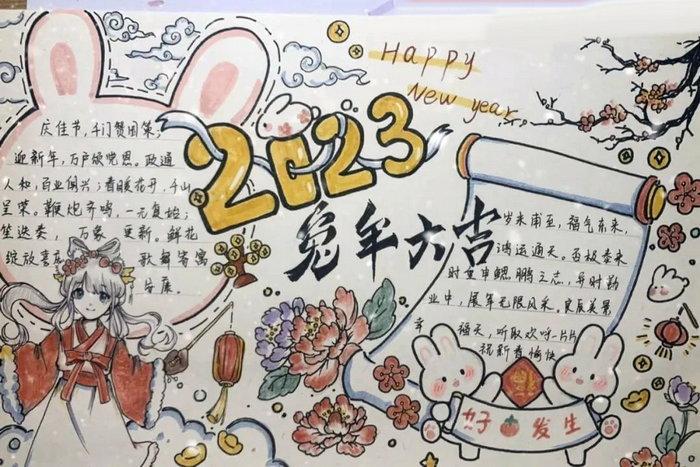 Happy
New year
2023
兔年大吉
庆佳节,千门赞国策;
迎新年,万户颂党恩。政通
人和,百业俱兴;春暖花开,千山
呈荣。鞭炮齐鸣,一元复始;
笙迭奏,万象更新。鲜花
绽放喜
歌舞寄寓
安康。
岁末甫至,福气东来,
鸿运通天。否极泰来
时重申鲲鹏之志,异时勤
业中,展年无限风采。良辰美景
幸福天,听取欢呼一片片
祝新春愉快
好 发生